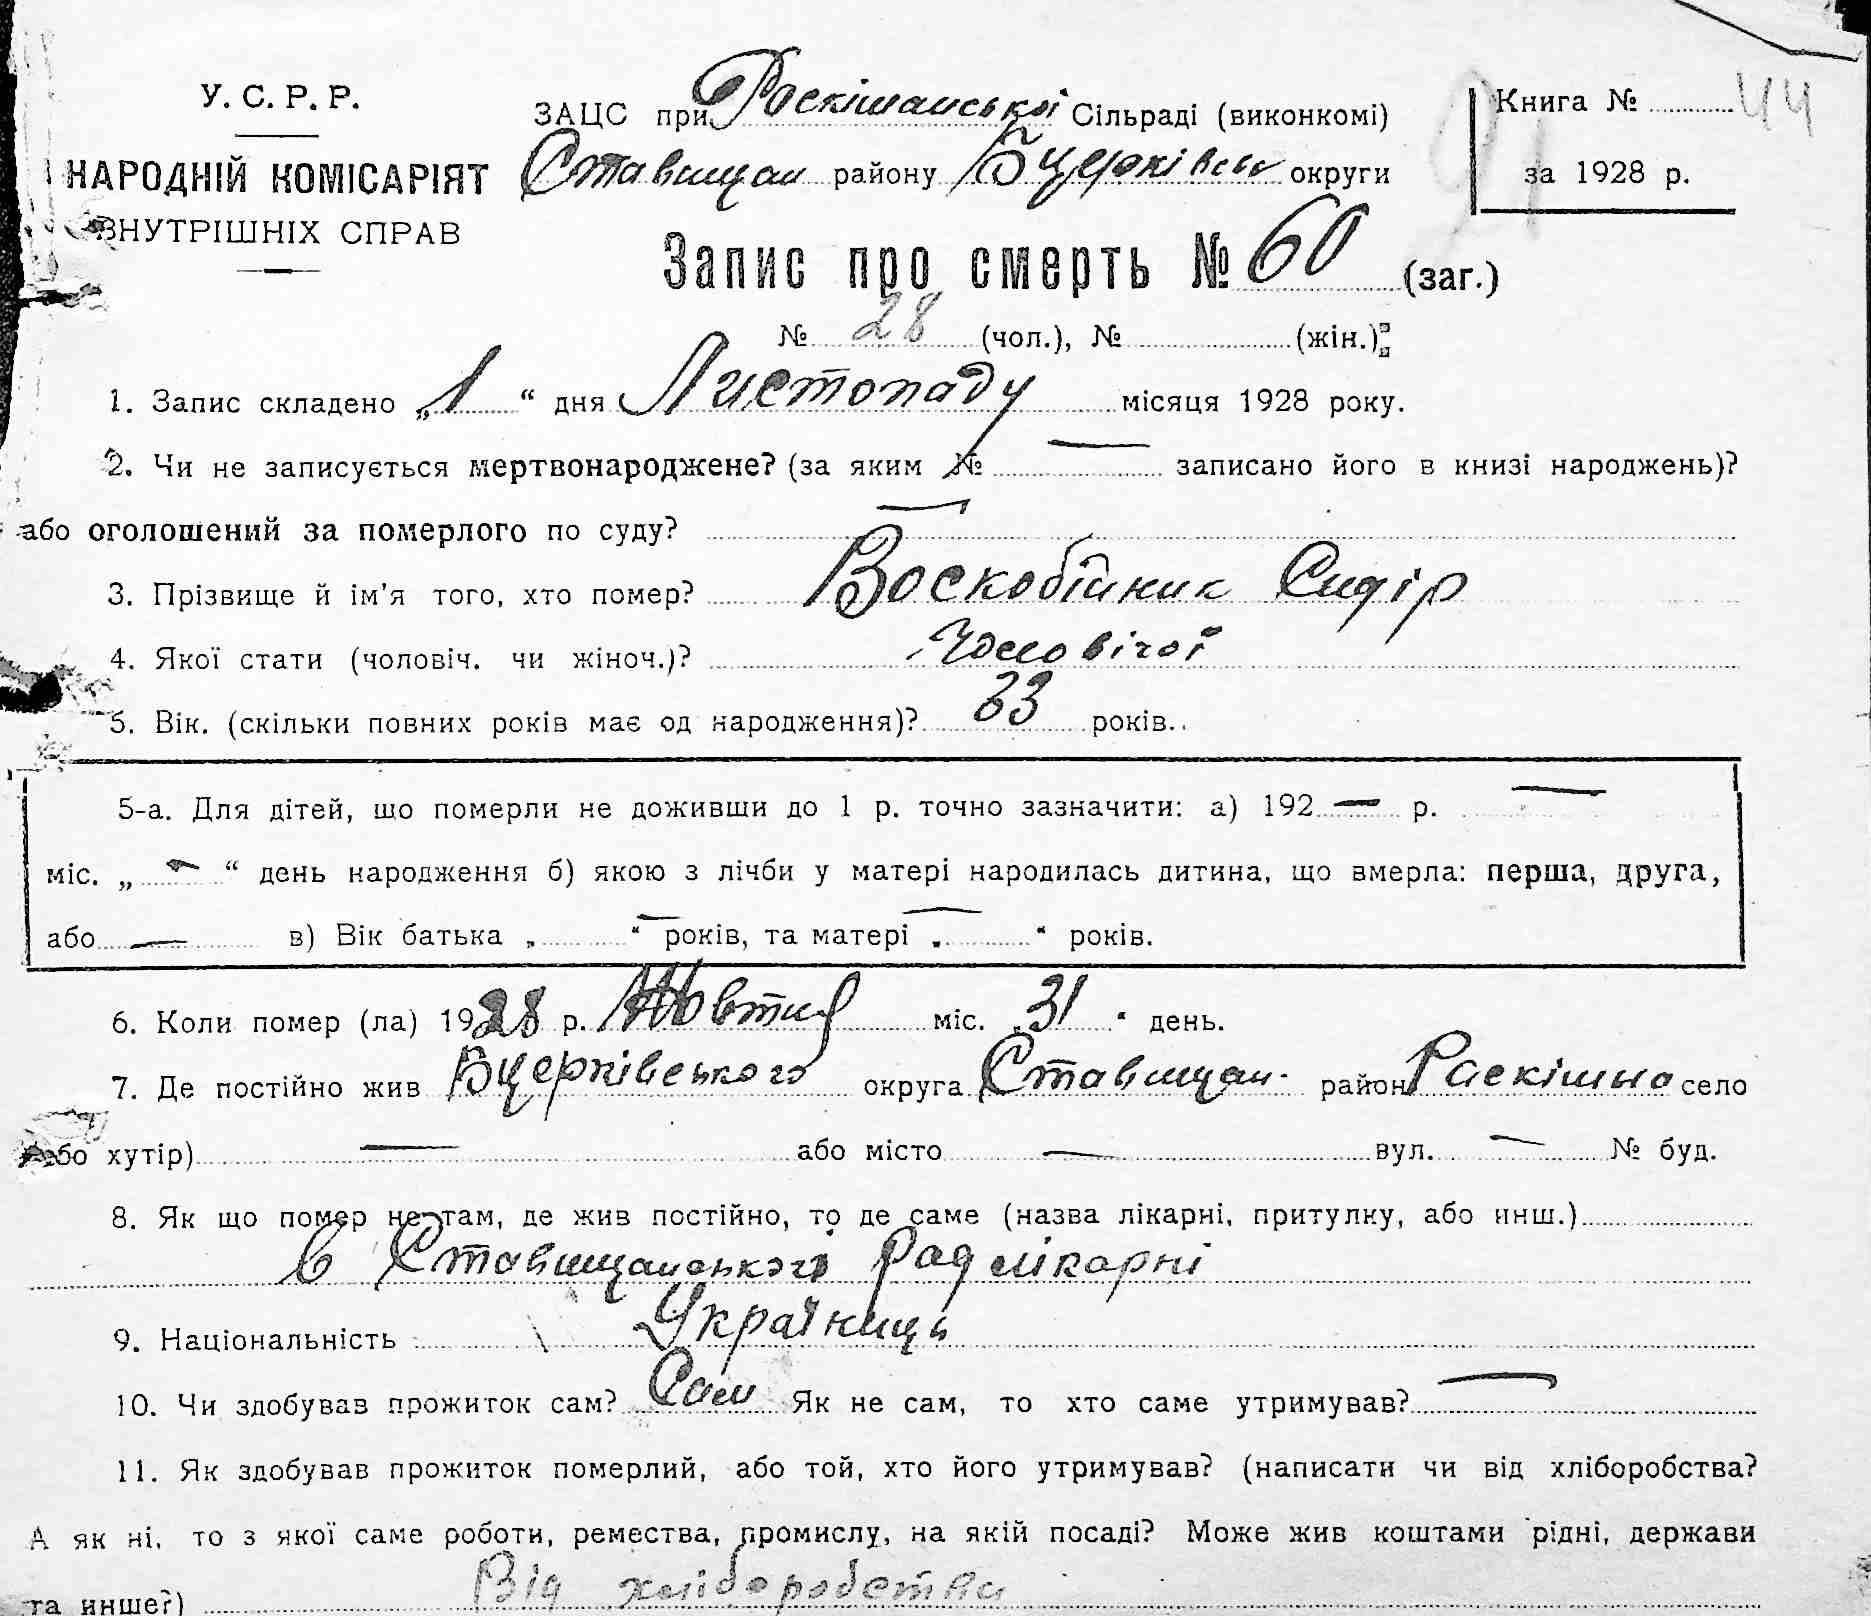 У. С. Р. Р.
НАРОДНІЙ КОМІСАРІЯТ
ВНУТРІШНІХ СПРАВ
ЗАЦС при Роскішанської Сільраді (виконкомі)
Ставищан району Бцерківськ округи
Книга № 44
за 1928 р.
Запис про смерть № 60 (заг.)
№ 28 (чол.), № (жін.)
1. Запис складено „1“ дня Листопаду місяця 1928 року.
2. Чи не записується мертвонароджене? (за яким № — записано його в книзі народжень)?
або оголошений за померлого по суду? —
3. Прізвище й ім'я того, хто помер? Воскобійник Сидір
4. Якої стати (чоловіч. чи жіноч.)? Чоловічої
5. Вік. (скільки повних років має од народження)? 33 років..
5-а. Для дітей, що померли не доживши до 1 р. точно зазначити: а) 192 — р. —
міс. „ — “ день народження б) якою з лічби у матері народилась дитина, що вмерла: перша, друга,
або — в) Вік батька „ — “ років, та матері „ — “ років.
6. Коли помер (ла) 1928 р. Жовтня міс. „31“ день.
7. Де постійно жив Бцерківського округа Ставищан. район Раскішна село
або хутір) — або місто — вул. — № буд.
8. Як що помер не там, де жив постійно, то де саме (назва лікарні, притулку, або инш.)
в Ставищанського Рад лікарні
9. Національність Українець
10. Чи здобував прожиток сам? Сам Як не сам, то хто саме утримував? —
11. Як здобував прожиток померлий, або той, хто його утримував? (написати чи від хліборобства?
А як ні, то з якої саме роботи, ремества, промислу, на якій посаді? Може жив коштами рідні, держави
та инше?) Від хліборобства